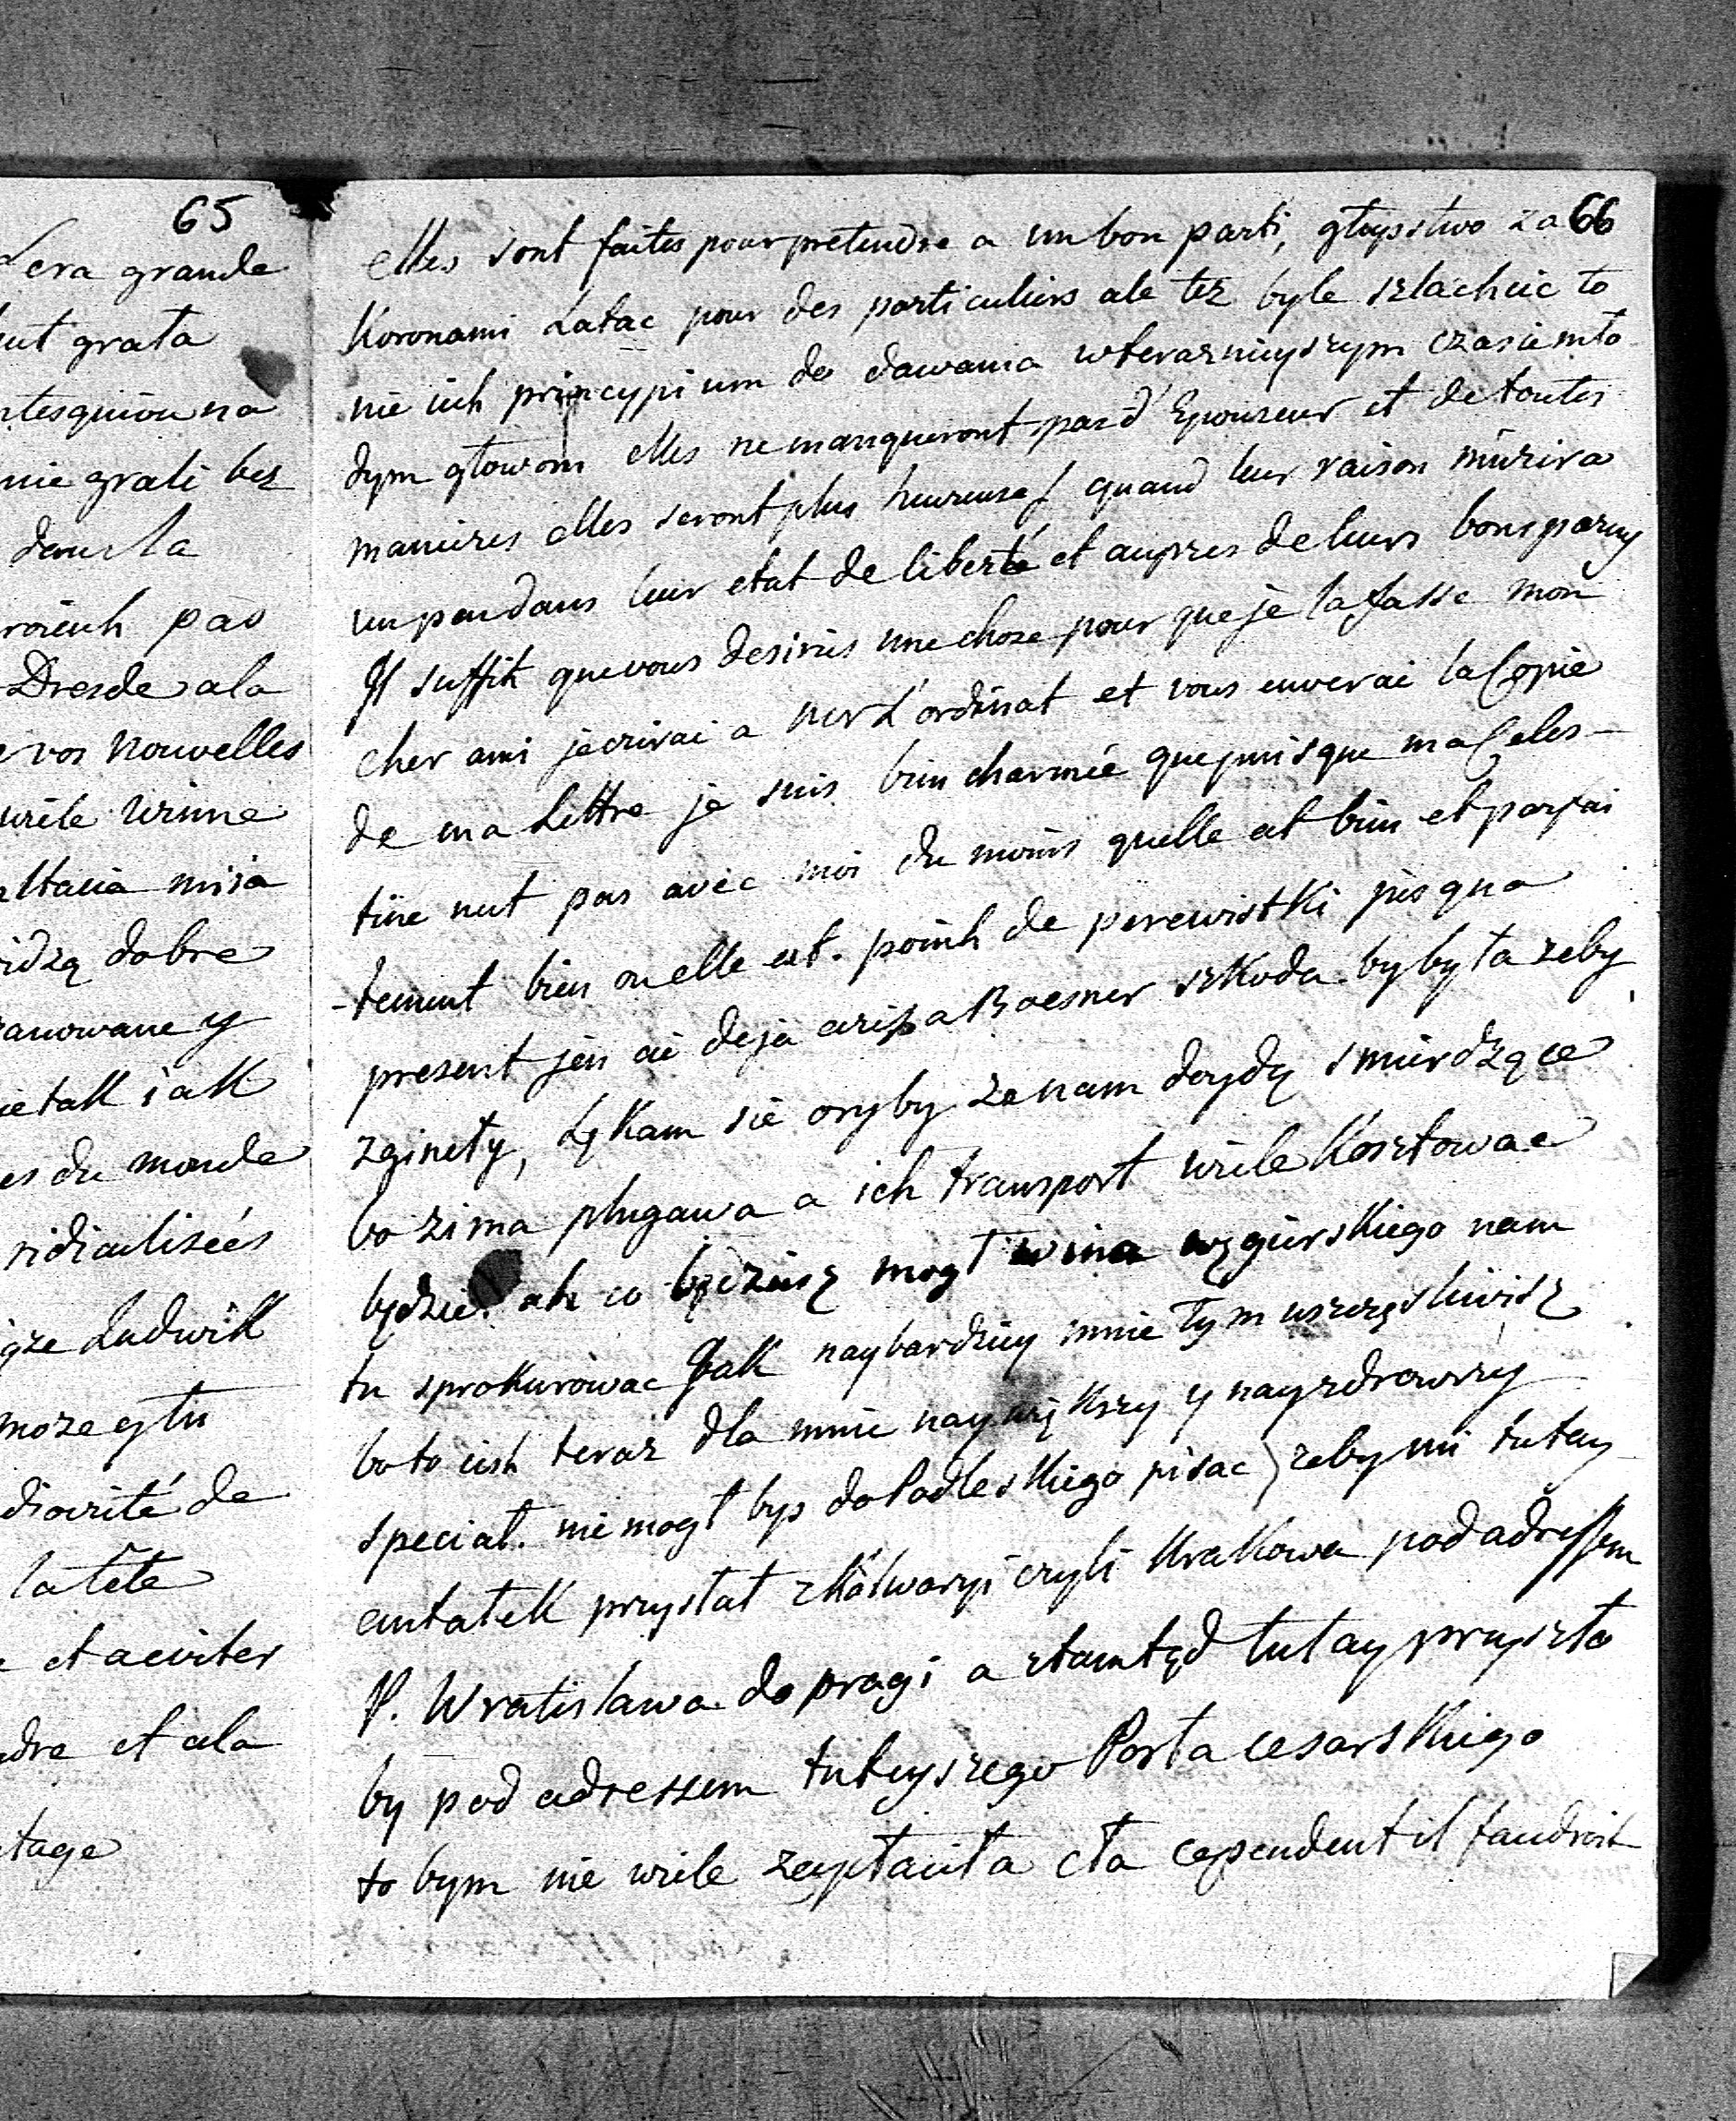 65
Lera grande
grata
ntesquiou na
nie grali bez
dans la
pas
Dresde a la
vos nouvelles
wiele winne
misia
idzą dobre
anowane y
ie tak iak
es du monde
ridiculiseés
Ludwik
moze y tu
diocrité de
la tête
et a eviter
dre et a la
tage
66
elles sont faites pour pretendre a un bon parti, głupstwo za
Koronami Latac pour des particuliers ale tez byle szlachcic to
nie iest principium do dawania w terazniejszym czasie mło
dym głowom elles ne manqueront pas d'Epouseur et de toutes
manieres elles seront plus heureuses quand leur raison mûrira
un peu dans leur etat de liberté et aupres de leurs bons parens
Il suffit que vous desiries une chose pour que je la fasse mon
cher ami j'ecrirai a L'ordinat et vous enverai la Copie
de ma Lettre je suis bien charmée que puisque ma Celes-
tine n'est pas avec moi du moins quelle est bien et parfai
-tement bien ou elle est. point de perewistki jusqu a
present j'en ai deja ecris a Boesner szkoda by była zeby
zgineły, Lękam sie o ryby ze nam doydą smierdzące
bo zima plugawa a ich transport wiele kosztowac
będzie. ah co będziesz mogł wina węgierskiego nam
tu sprokurowac Jak naybardziey mnie tym uszczęsliwisz
bo to iest teraz dla mnie naywiększy y nayzdrowszy
speciał. nie mogł bys do Podleskiego pisac zeby mi tutay
antałek przysłał z Kalwaryi czyli Krakowa pod adressem
P. Wratislawa do Pragi a ztamtąd tutay przyszło
by pod adressem tuteyszego Posła cesarskiego
to bym nie wiele zapłaciła cła cependent il faudroit